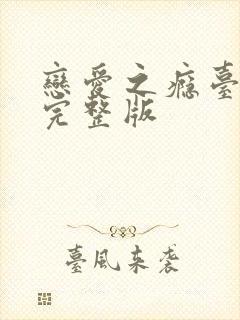 戀愛之癮臺
完整版
臺風來襲